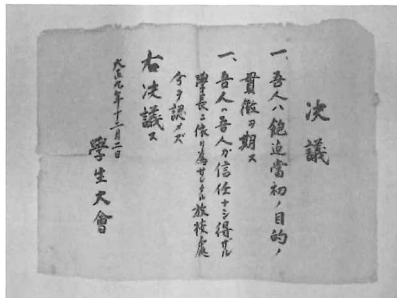 決議
一、吾人ハ飽迄當初ノ目的ノ
貫徹ヲ期ス
一、吾人ハ吾人ガ信任ナシ得ザル
學長ニ依リ為サレタル放校處
分ヲ認メズ
右决議ス
大正九年十二月二日
學生大會